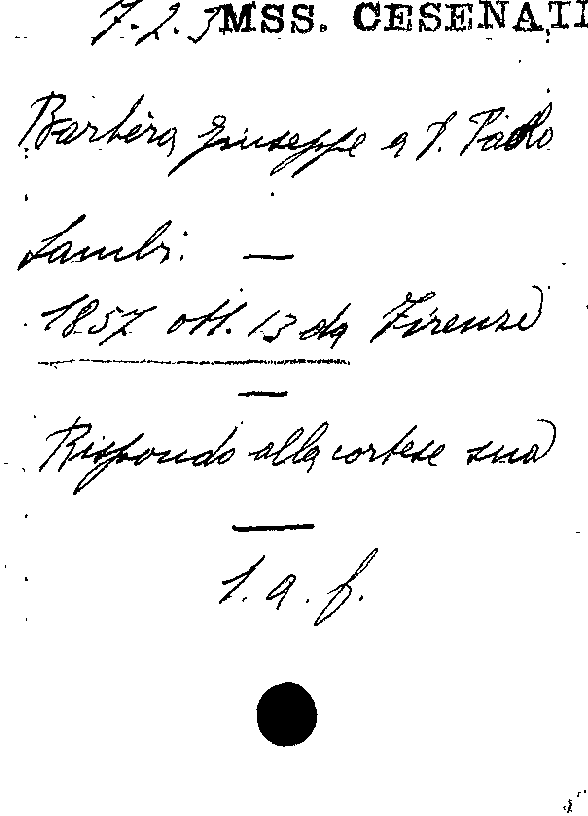 7.2.3 MSS. CESENATI
Barbèra Giuseppe a P. Paolo
Lambr. —
1857 ott. 13 da Firenze
—
Rispondo alla cortese sua
—
l. a. f.